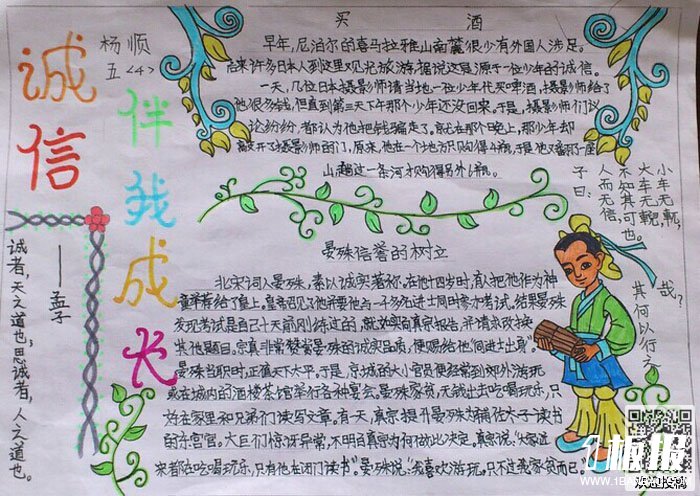 诚信
伴我成长
杨顺
五<4>
买酒
早年,尼泊尔的喜马拉雅山南麓很少有外国人涉足。
后来许多日本人到这里观光旅游,据说这是源于一位少年的诚信。
一天,几位日本摄影师请当地一位少年代买啤酒,摄影师给了
他很多钱,但直到第三天下午那个少年还没回来。于是,摄影师们议
论纷纷,都认为他把钱骗走了。就在那个晚上,那少年却
敲开了摄影师的门,原来,他在一个地方只购得4瓶,于是他又翻了一座
山,趟过一条河才购得另外6瓶。
晏殊信誉的树立
北宋词人晏殊,素以诚实著称。在他十四岁时,有人把他作为神
童举荐给了皇上,皇帝召见了他,并要他与一千多名进士同时参加考试。结果晏殊
发现考试是自己十天前刚练过的,就如实向真宗报告,并请求改换
其他题目。宋真宗非常赞赏晏殊的诚实品质,便赐给他"同进士出身"。
晏殊当职时,正值天下太平。于是,京城的大小官员便经常到郊外游玩
或在城内的酒楼茶馆举行各种宴会。晏殊家贫,无钱出去吃喝玩乐,只
好在家里和兄弟们读写文章。有一天,真宗提升晏殊为辅佐太子读书
的东宫官。大臣们惊讶异常,不明白真宗为何做出此决定。真宗说:
只有他在闭门读书"。晏殊说:"我喜欢游玩,只不过我家贫而已。
诚者,天之道也;思诚者,人之道也。
——孟子
子曰:
人而无信,
不知其可也。
大车无輗,
小车无軏,
其何以行之
哉?
板报
欢迎投稿